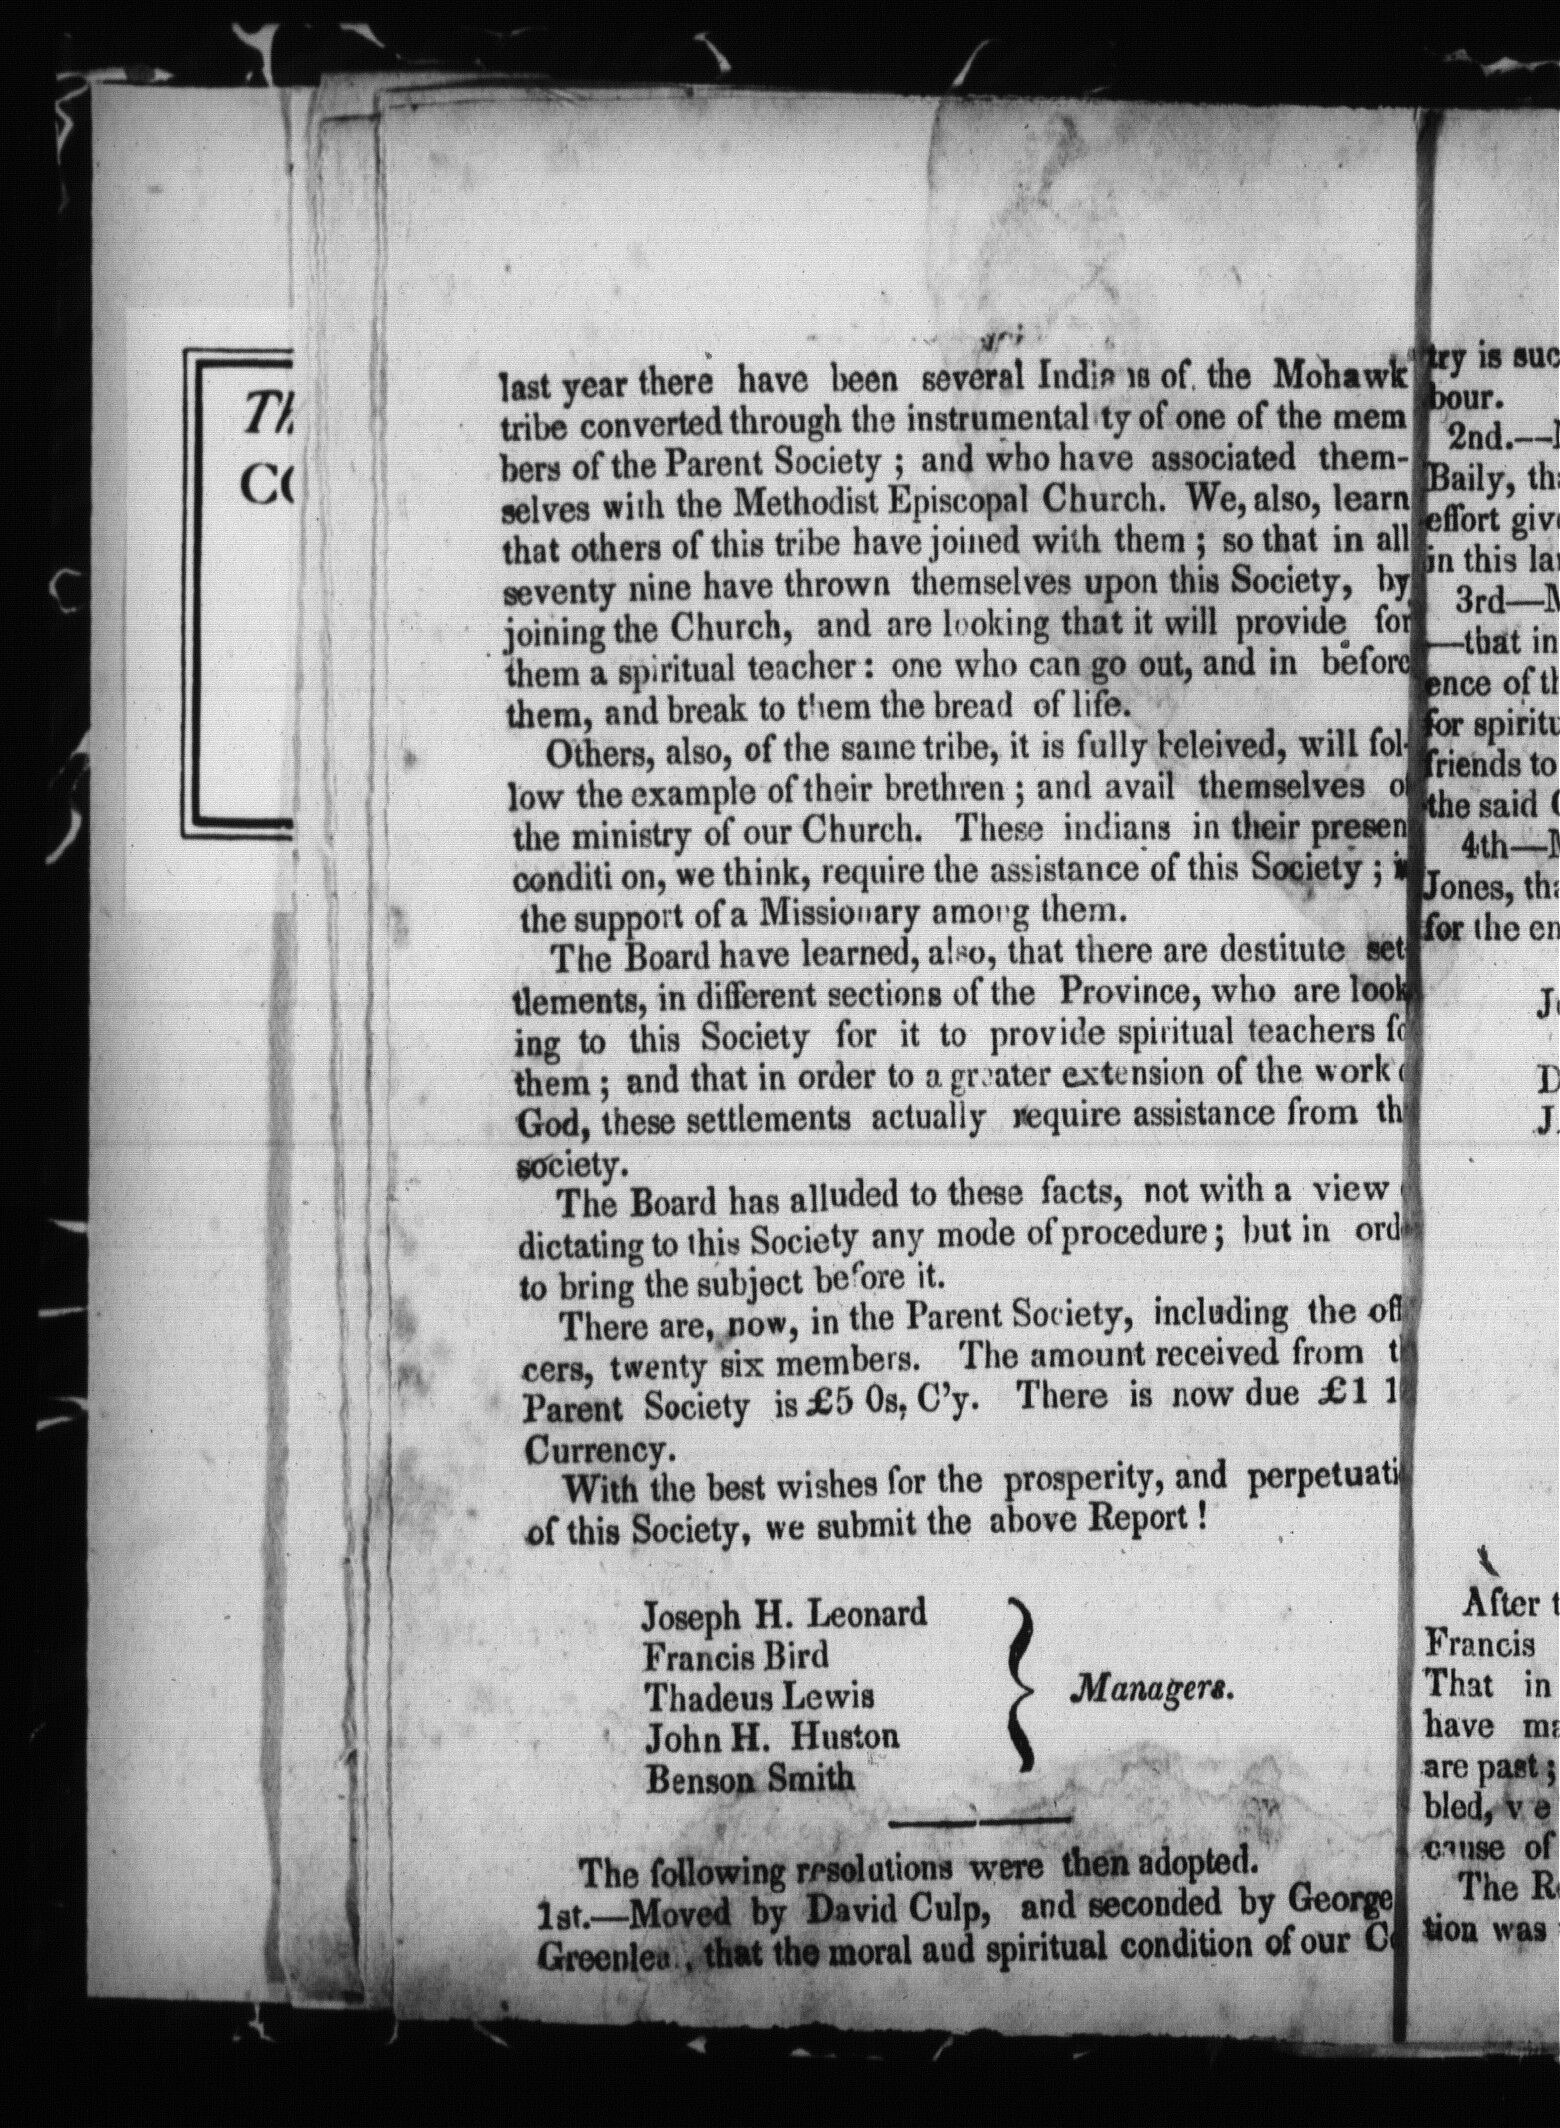 Th
CO
last year there have been several Indians of the Mohawk
tribe converted through the instrumentality of one of the mem
bers of the Parent Society ; and who have associated them-
selves with the Methodist Episcopal Church. We, also, learn
that others of this tribe have joined with them ; so that in all
seventy nine have thrown themselves upon this Society, by
joining the Church, and are looking that it will provide for
them a spiritual teacher : one who can go out, and in before
them, and break to them the bread of life.
Others, also, of the same tribe, it is fully beleived, will fol-
low the example of their brethren ; and avail themselves of
the ministry of our Church. These indians in their presen
conditi on, we think, require the assistance of this Society ;
the support of a Missionary among them.
The Board have learned, also, that there are destitute set-
tlements, in different sections of the Province, who are look
ing to this Society for it to provide spiritual teachers fo
them ; and that in order to a greater extension of the work
God, these settlements actually require assistance from th
society.
The Board has alluded to these facts, not with a view
dictating to this Society any mode of procedure ; but in orde
to bring the subject before it.
There are, now, in the Parent Society, including the off
cers, twenty six members. The amount received from t
Parent Society is £5 0s, C'y. There is now due £1 1
Currency.
With the best wishes for the prosperity, and perpetuati
of this Society, we submit the above Report !
Joseph H. Leonard
Francis Bird
Thadeus Lewis
John H. Huston
Benson Smith
Managers.
The following resolutions were then adopted.
1st.—Moved by David Culp, and seconded by George
Greenlea , that the moral and spiritual condition of our Co
try is suc
bour.
2nd.—M
Baily, tha
effort give
in this lan
3rd—M
—that in
ence of th
for spiritu
friends to
the said C
4th—M
Jones, tha
for the en
Jo
D
J.
After t
Francis
That in
have ma
are past ;
bled, v e
cause of
The Re
tion was